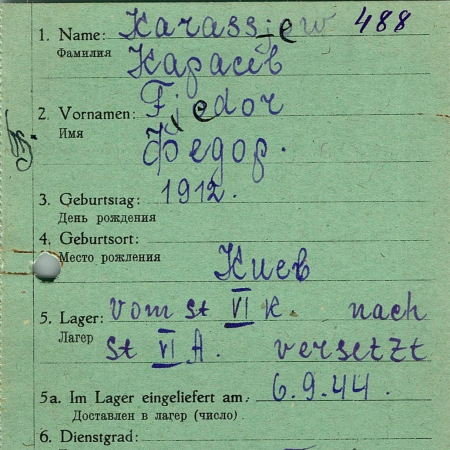 1. Name: Karassjew 488
Фамилия Карасёв
2. Vornamen: Fjedor
Имя Федор.
3. Geburtstag: 1912.
День рождения
4. Geburtsort:
Место рождения Киев
5. Lager: vom st VI K. nach
Лагер st VI A. versetzt
5a. Im Lager eingeliefert am: 6.9.44.
Доставлен в лагер (число)
6. Dienstgrad: